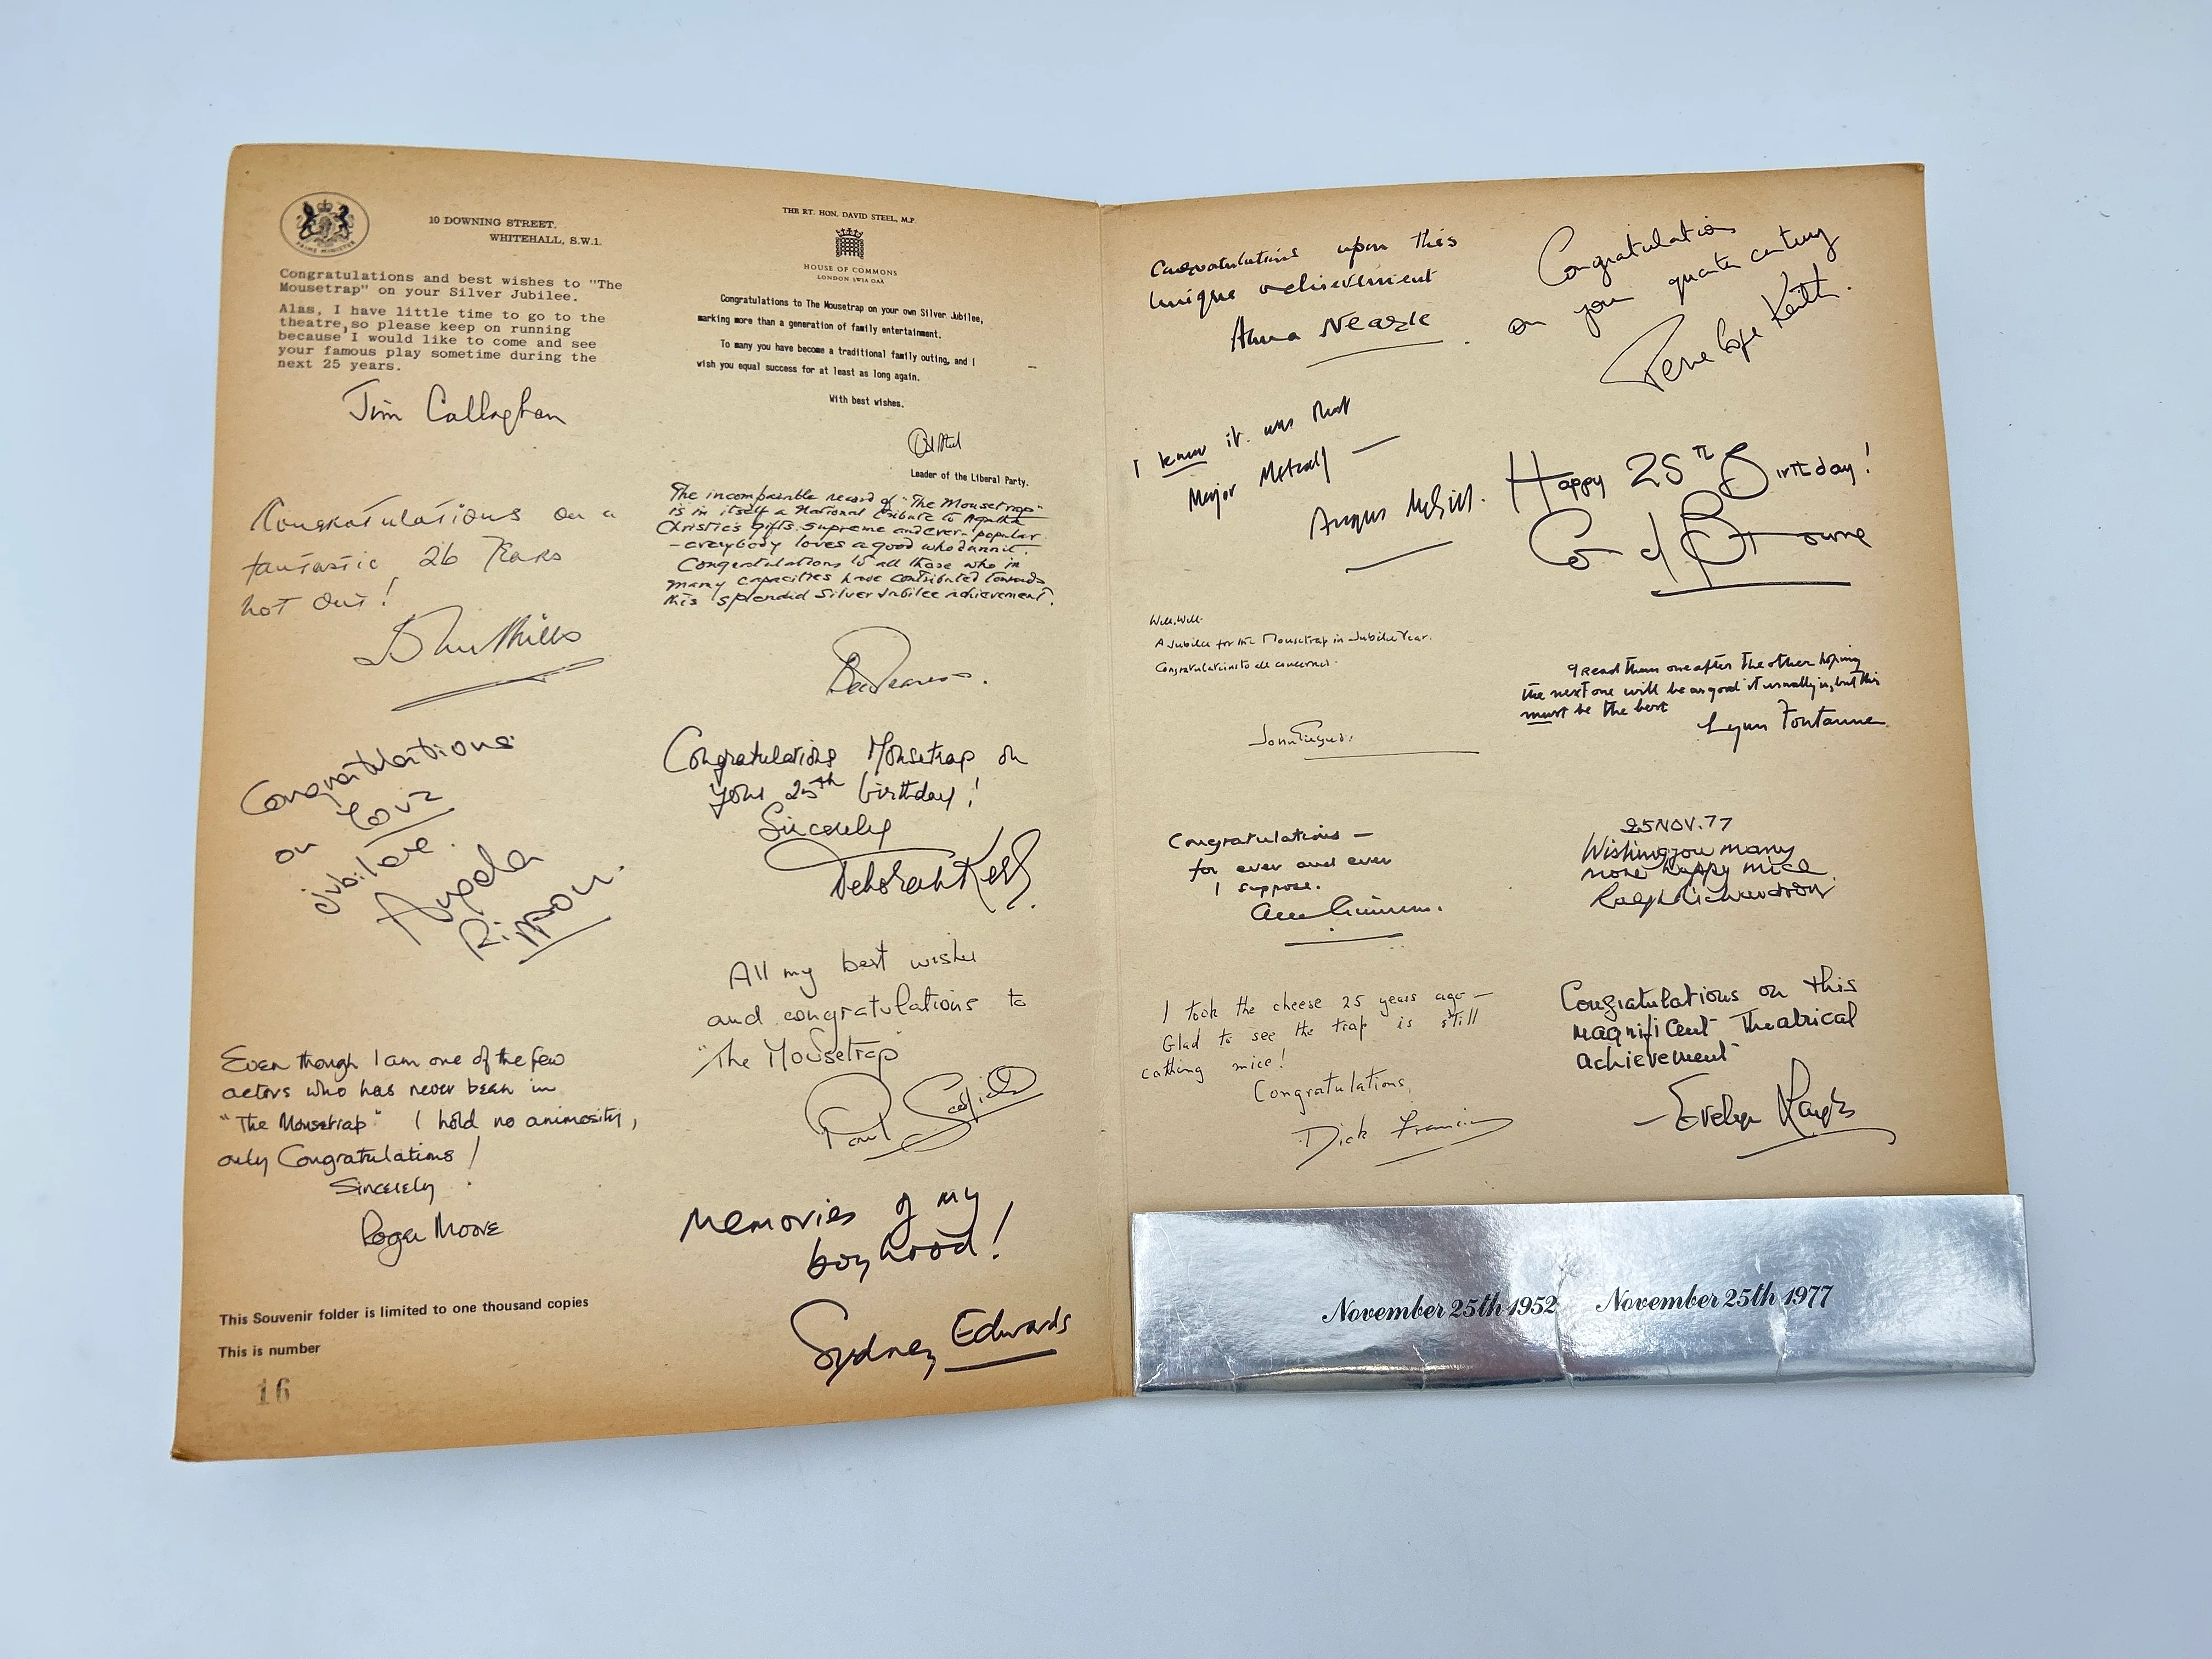 PRIME MINISTER
10 DOWNING STREET.
WHITEHALL, S.W.1.
Congratulations and best wishes to "The
Mousetrap" on your Silver Jubilee.
Alas, I have little time to go to the
theatre, so please keep on running
because I would like to come and see
your famous play sometime during the
next 25 years.
Jim Callaghan
THE RT. HON. DAVID STEEL, M.P.
HOUSE OF COMMONS
LONDON SW1A 0AA
Congratulations to The Mousetrap on your own Silver Jubilee,
marking more than a generation of family entertainment.
To many you have become a traditional family outing, and I
wish you equal success for at least as long again.
With best wishes.
Leader of the Liberal Party.
Congratulations on a
fantastic 26 Years
not out!
John Mills
The incomparable record of "The Mousetrap"
is in itself a National tribute to Agatha
Christie's gifts supreme and ever-popular
- everybody loves a good whodunnit.
Congratulations to all those who in
many capacities have contributed towards
this splendid Silver Jubilee achievement.
Congratulations
on your
jubilee.
Angela
Rippon.
Congratulations Mousetrap on
your 25th birthday!
Sincerely
Deborah Kerr
All my best wishes
and congratulations to
"The Mousetrap
Paul Scofield
Even though I am one of the few
actors who has never been in
"The Mousetrap" I hold no animosity,
only Congratulations!
Sincerely
Roger Moore
Memories of my
boyhood!
Sydney Edwards
This Souvenir folder is limited to one thousand copies
This is number
16
Congratulations upon this
unique achievement
Anna Neagle
Congratulations
on your quarter century
Penelope Keith.
I knew it was that
Major Metcalf —
Angus McGill.
Happy 25th Birthday!
Coral Browne
Well, Well.
A Jubilee for the Mousetrap in Jubilee Year.
Congratulations to all concerned.
I read them one after the other hoping
the next one will be as good it usually is, but this
must be the best
Lynn Fontanne
Congratulations —
for ever and ever
I suppose.
25 NOV. 77
Wishing you many
more happy mice
Ralph Richardson
I took the cheese 25 years ago —
Glad to see the trap is still
cathing mice!
Congratulations,
Dick Francis
Congratulations on this
magnificent Theatrical
achievement
— Evelyn Laye
November 25th 1952 November 25th 1977